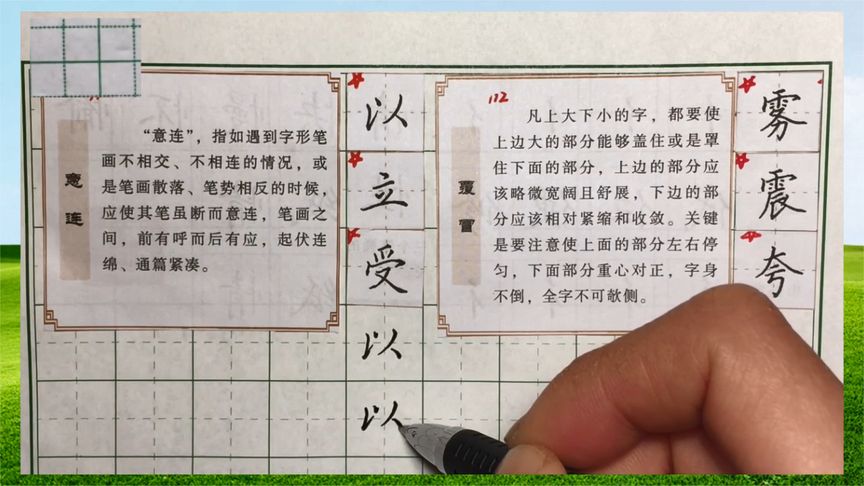 意连
“意连”，指如遇到字形笔
画不相交、不相连的情况，或
是笔画散落、笔势相反的时候，
应使其笔虽断而意连，笔画之
间，前有呼而后有应，起伏连
绵、通篇紧凑。
以
立
受
以
以
112
覆冒
凡上大下小的字，都要使
上边大的部分能够盖住或是罩
住下面的部分，上边的部分应
该略微宽阔且舒展，下边的部
分应该相对紧缩和收敛。关键
是要注意使上面的部分左右停
匀，下面部分重心对正，字身
不倒，全字不可欹侧。
雾
震
夸